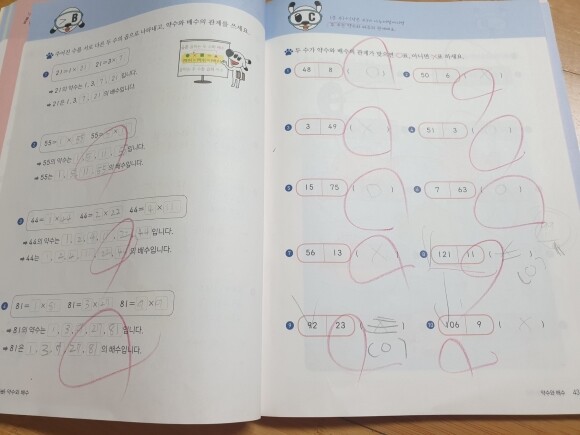 B
주어진 수를 서로 다른 두 수의 곱으로 나타내고, 약수와 배수의 관계를 쓰세요.
1 21=1×21 21=3×7
➡ 21의 약수는 1, 3, 7, 21 입니다.
➡ 21은 1, 3, 7, 21 의 배수입니다.
2 55=1×55 55=
➡ 55의 약수는 입니다.
➡ 55는 의 배수입니다.
3 44=1×44 44=2×22 44=4×11
➡ 44의 약수는 입니다.
➡ 44는 의 배수입니다.
4 81=1×81 81=3×27 81=
➡ 81의 약수는 1, 3, 9, 27, 81 입니다.
➡ 81은 1, 3, 9, 27, 81 의 배수입니다.
약수와 배수
C
두 수가 약수와 배수의 관계가 맞으면 ○표, 아니면 ×표 하세요.
1 48 8 ( O )
2 50 6 ( X )
3 3 49 ( X )
4 51 3 ( )
5 15 75 ( O )
6 7 63 ( O )
7 56 13 ( X )
8 121 11 ( )
(O)
9 92 23 ( )
(O)
10 106 9 ( X )
약수와 배수 43